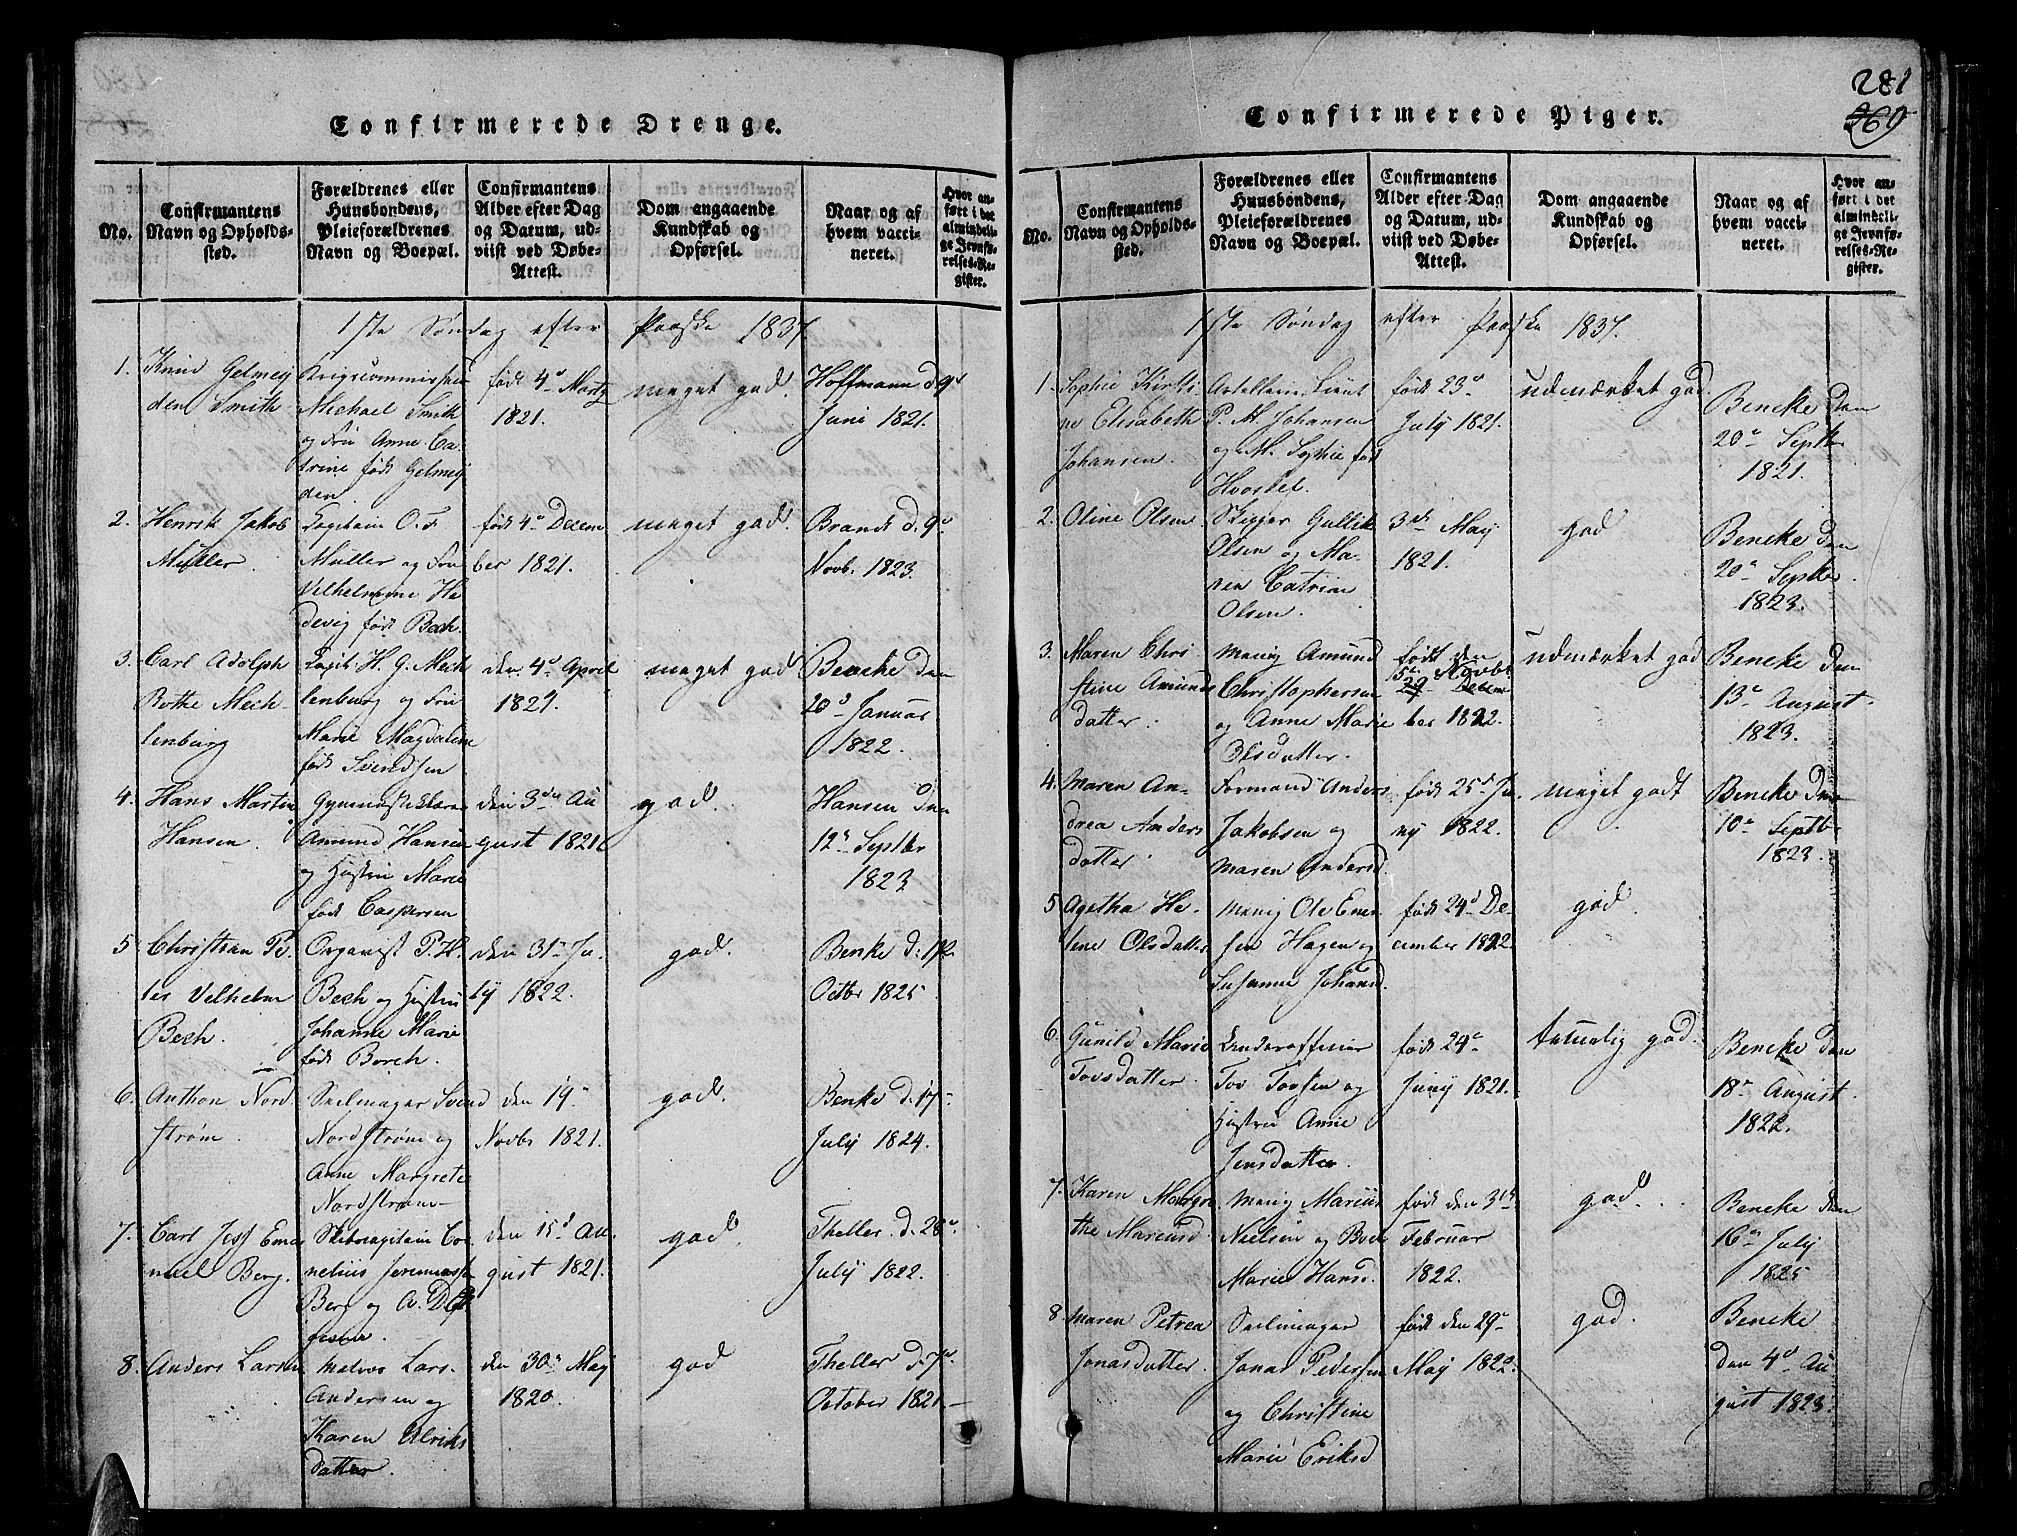 Confirmerede Drenge.
No.
Confirmantens
Navn og Opholds-
sted.
Forældrenes eller
Huusbondens,
Pleieforældrenes
Navn og Boepæl.
Confirmantens
Alder efter Dag
og Datum, ud-
viist ved Døbe-
Attest.
Dom angaaende
Kundskab og
Opførsel.
Naar og af
hvem vacci-
neret.
Hvor an-
ført i det
almindeli-
ge Jevnfø-
relses-Re-
gister.
1ste Søndag efter Paaske 1837.
1.
Knud Gelmey
den Smith
Krigscommissair
Michael Smith
og Fru Anne Ca
trine født Gelmey
den.
født 4d Marty
1821.
meget god.
Hoffmann d. 9d
Juni 1821.
2.
Henrik Jakob
Müller.
Capitain O. F.
Müller og Fru
Vilhelmine He
devig født Bech.
født 4d Decem
ber 1821.
meget god.
Brandt d. 9d
Novb. 1823.
3.
Carl Adolph
Rothe Mech
lenburg
Capit. H. G. Mech
lenburg og Fru
Marie Magdalene
født Svendsen
den 4d April
1821.
meget god
Bencke den
20d Januar
1822.
4.
Hans Martin
Hansen.
Gymnastiklærer
Amund Hansen
og Hustru Marie
født Caspersen
den 3die Au
gust 1821
god.
Hansen den
12n Septbr
1823
5
Christian Pe
ter Vilhelm
Bech.
Organist P. H.
Bech og Hustru
Johanne Marie
født Borch.
den 31n Ju
ly 1822.
god.
Benke d.
Octbr 1825
6.
Anthon Nord
strøm.
Seilmager Svend
Nordstrøm og
Anne Margrete
Nordstrøm
den 19n
Novbr 1821.
god.
Benke d. 17n
July 1824.
7.
Carl Jess Ema
nuel Berg.
Skibscapitain Cor
nelius Jeremiassen
Berg og A. D.
den 15d Au
gust 1821.
god.
Theller. d. 28d
July 1822.
8.
Anders Larsen
Matros Lars
Andersen og
Karen Ulriks
datter.
den 30n May
1820.
god
Theller d. 7d
October 1821.
281
269
Confirmerede Piger.
No.
Confirmantens
Navn og Opholds-
sted.
Forældrenes eller
Huusbondens,
Pleieforældrenes
Navn og Boepæl.
Confirmantens
Alder efter Dag
og Datum, ud-
viist ved Døbe-
Attest.
Dom angaaende
Kundskab og
Opførsel.
Naar og af
hvem vacci-
neret.
Hvor an-
ført i det
almindeli-
ge Jevnfø-
relses-Re-
gister.
1ste Søndag efter Paaske 1837.
1.
Sophie Kirsti-
ne Elisabeth
Johansen.
Artilleri Lieut
P. M. Johansen
og M. Sophie født
født 23d
July 1821.
udmærket god
Bencke den
20n Septbr
1821.
2.
Oline Olsen
Skipper Gullik
Olsen og Ma-
ren Catrine
Olsen.
3die May
1821.
god
Bencke den
20n Septbr.
1823.
3.
Maren Chri
stine Amunds
datter.
Menig Amund
Christophersen
og Anne Marie
Olsdatter.
født den
5te Novbr
29 Decem
ber 1822.
udmærket god
Bencke den
13n August
1823.
4.
Maren An-
drea Anders
datter.
Formand Anders
Jakobsen og
Maren Andersd
født 25d Ju
ny 1822.
meget godt
Bencke den
10n Septbr
1823.
5
Agetha He-
lene Olsdatter
Menig Ole Ener
sen Hagen og
Susanne Johansd.
født 24d De-
cember 1822
god.
6.
Gunild Marie
Tovsdatter.
Underofficier
Tov Tovsen og
Hustru Anne
Jensdatter.
født 24d
Juny 1821.
temmelig god.
Bencke den
18n August
1822.
7.
Karen Margre
the Marcusd
Menig Marcus
Nielsen og Boel
Marie Hansd.
født den 3die
Februar
1822.
god.
Bencke den
16n July
1825
8.
Maren Petrea
Jonasdatter.
Seilmager
Jonas Pedersen
og Christine
Marie Eriksd
født den 29n
May 1822.
god.
Bencke
den 4d Au
gust 1823.